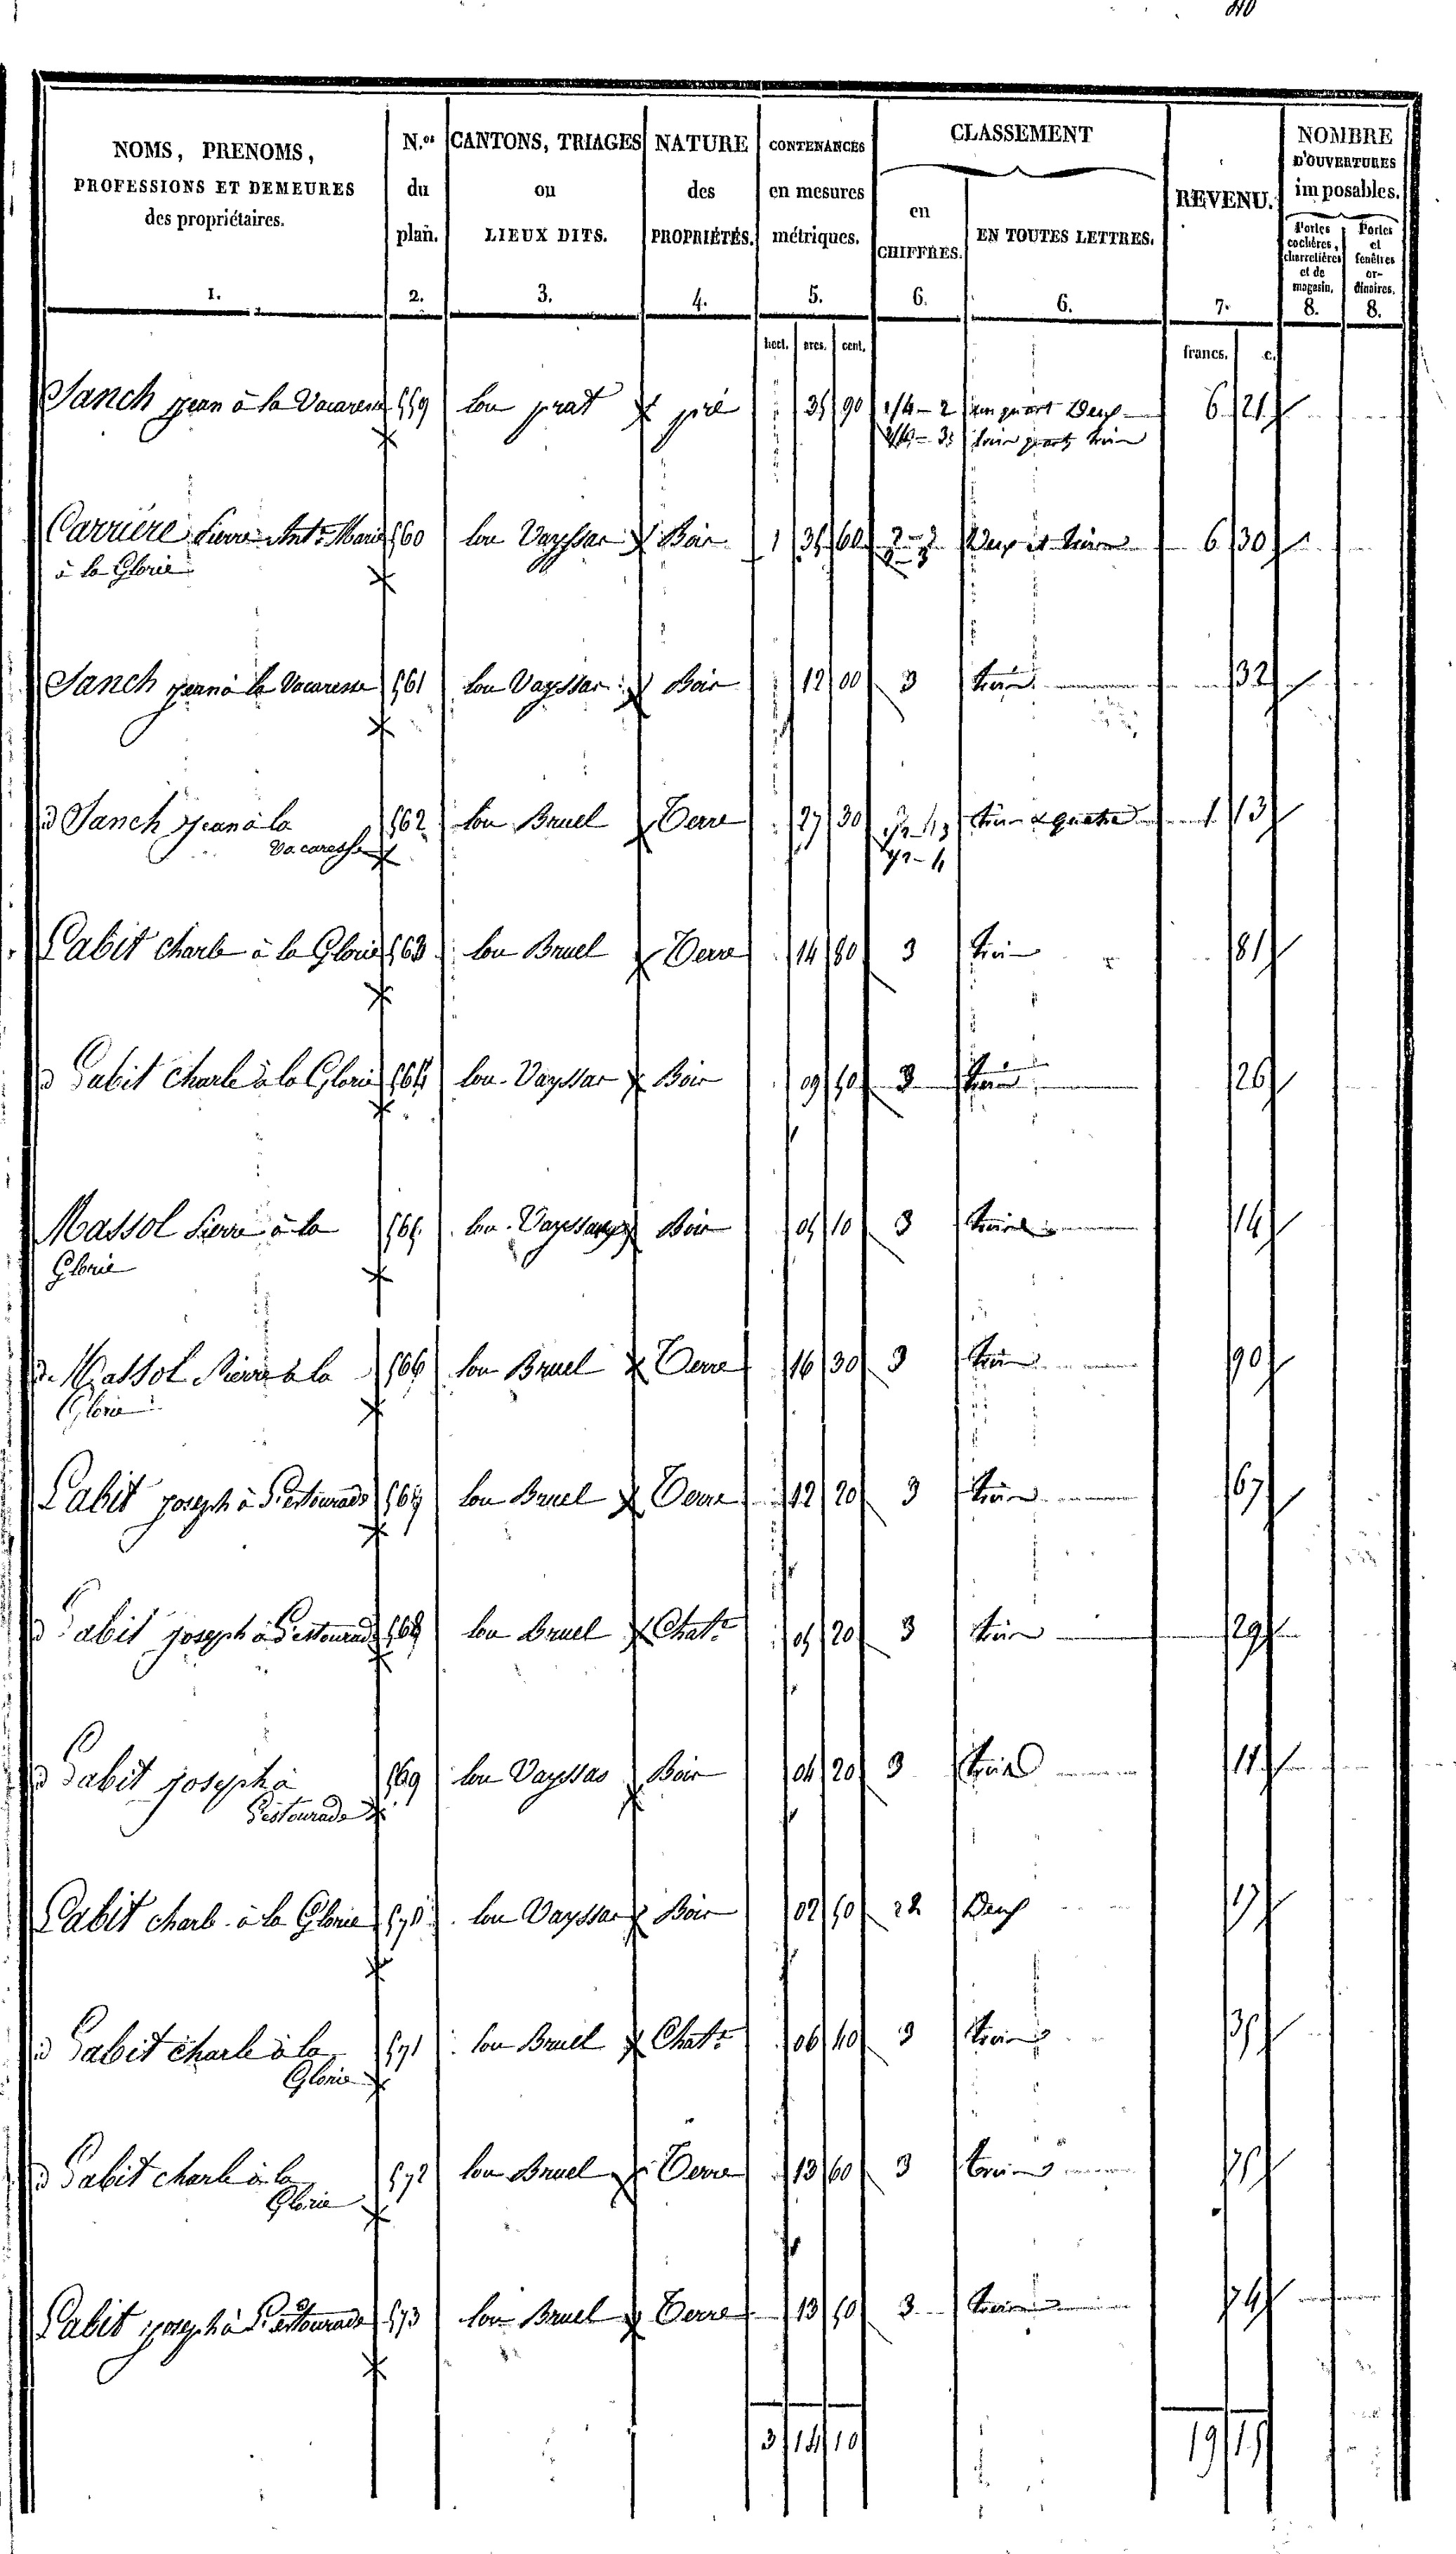 NOMS, PRENOMS, PROFESSIONS ET DEMEURES des propriétaires. 1.
N.os du plan. 2.
CANTONS, TRIAGES ou LIEUX DITS. 3.
NATURE des PROPRIÉTÉS. 4.
CONTENANCES en mesures métriques. 5.
CLASSEMENT
en CHIFFRES. 6.
EN TOUTES LETTRES. 6.
REVENU. 7.
NOMBRE D'OUVERTURES imposables.
Portes cochères, charretières et de magasin. 8.
Portes et fenêtres ordinaires. 8.
hect. ares. cent. francs. c.
Sanch jean à la Vacaresse 559 lou prat pré 35 90 1/4 - 2 un quart Deux 6 21
3/4 - 3 trois quarts trois
Carrière Pierre Ant.e Marie 560 lou Vayssas Bois 1 35 60 2 - 3 Deux et trois 6 30
à la Glorie
Sanch jean à la Vacaresse 561 lou Vayssas Bois 12 00 3 trois 32
d Sanch jean à la 562 lou Bruel Terre 27 30 1/2 - 3 trois & quatre 1 13
Vacaresse 1/2 - 4
Labit charle à la Glorie 563 lou Bruel Terre 14 80 3 trois 81
d Labit charle à la Glorie 564 lou Vayssas Bois 09 50 3 trois 26
Massol Pierre à la 565 lou Vayssas Bois 05 10 3 trois 14
Glorie
d. Massol Pierre à la 566 lou Bruel Terre 16 30 3 trois 90
Glorie
Labit joseph à Pestourade 567 lou Bruel Terre 12 20 3 trois 67
d Labit joseph à Pestourade 568 lou Bruel Chat.r 05 20 3 trois 29
d Labit joseph à 569 lou Vayssas Bois 04 20 3 trois 11
Pestourade
Labit charle à la Glorie 570 lou Vayssas Bois 02 50 2 Deux 17
d Labit charle à la 571 lou Bruel Chat.r 06 40 3 trois 35
Glorie
d Labit charle à la 572 lou Bruel Terre 13 60 3 trois 75
Glorie
Labit joseph à Pestourade 573 lou Bruel Terre 13 50 3 trois 74
3 14 10 19 15